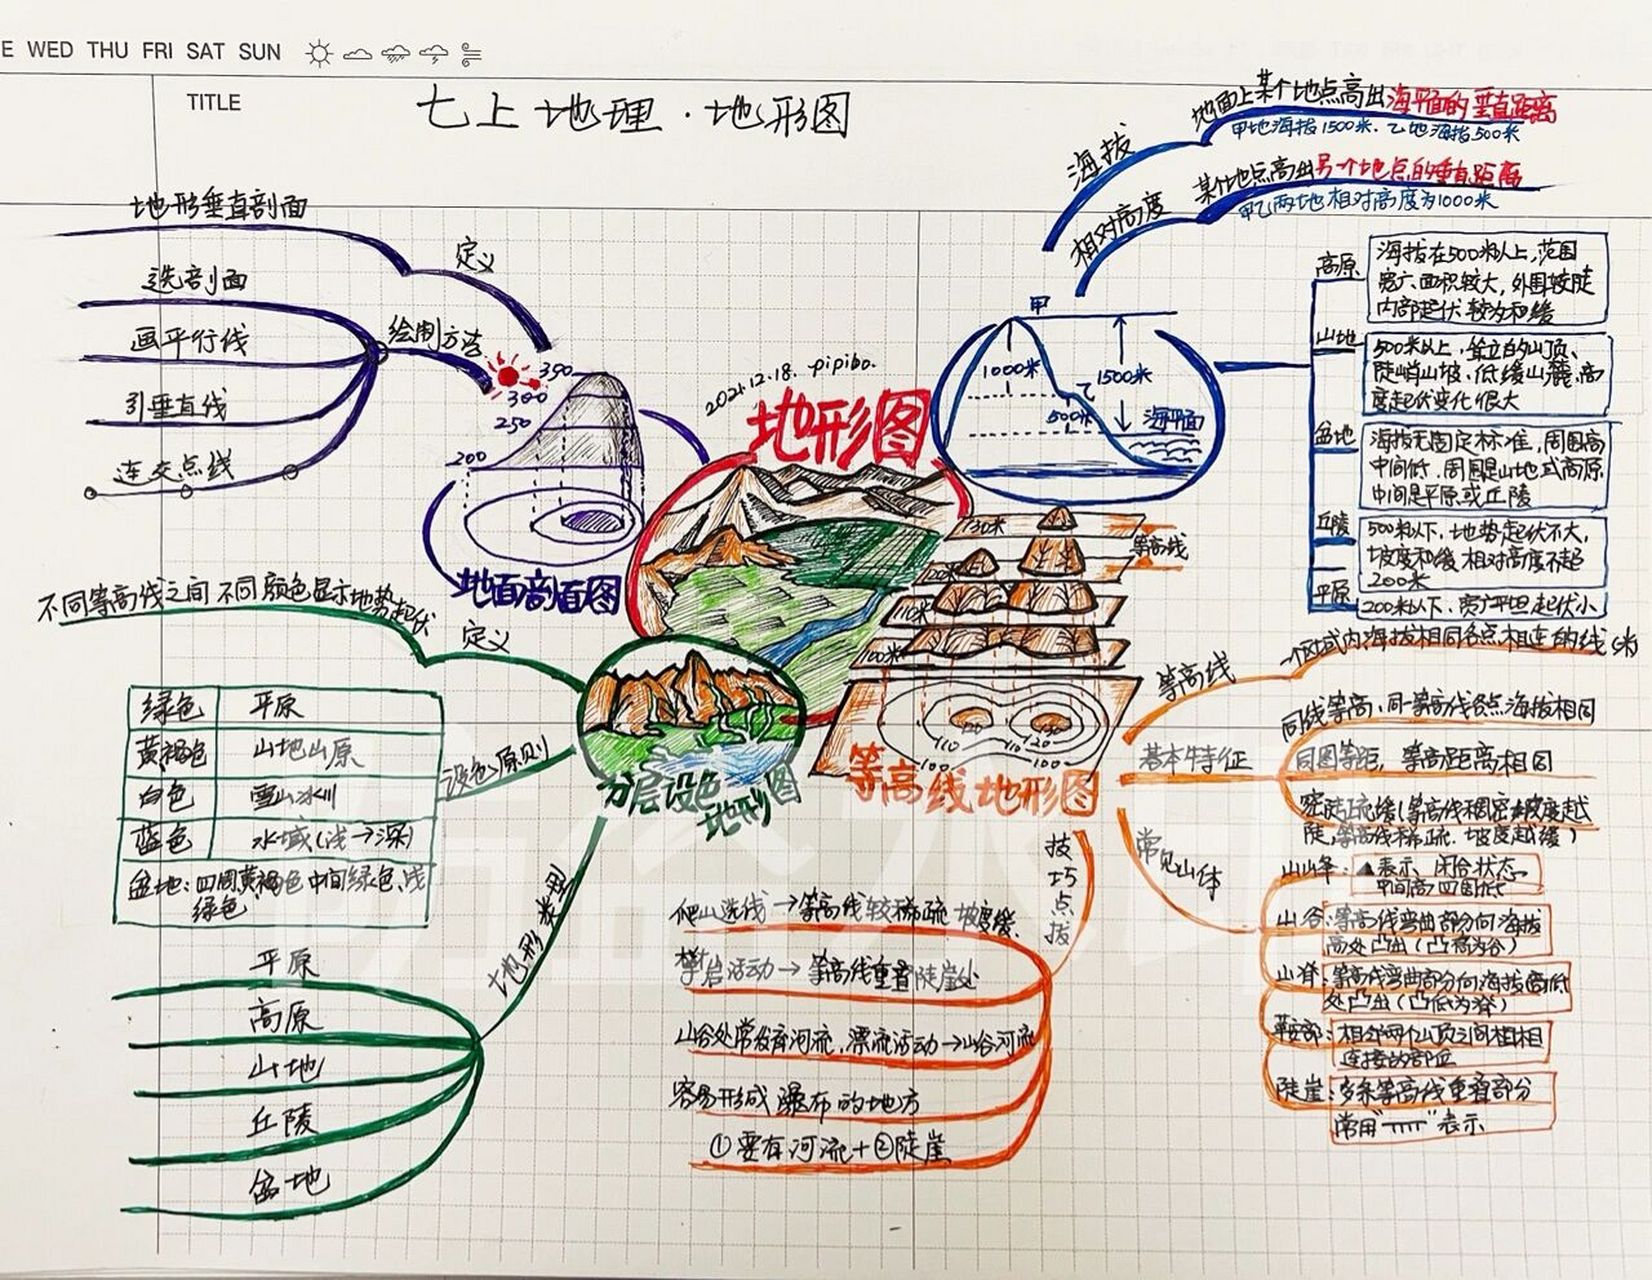 E WED THU FRI SAT SUN
TITLE
七上地理·地形图
海拔
地面上某个地点高出海平面的垂直距离
甲地海拔1500米. 乙地海拔500米
相对高度
某个地点高出另一个地点的垂直距离
甲乙两地相对高度为1000米
高原
海拔在500米以上,范围
宽广、面积较大, 外围较陡
内部起伏较为和缓
山地
500米以上, 耸立的山顶、
陡峭山坡、低缓山麓、高
度起伏变化很大
盆地
海拔无固定标准, 周围高
中间低. 周围是山地或高原
中间是平原或丘陵
丘陵
500米以下, 地势起伏不大,
坡度和缓 相对高度不超
200米
平原
200米以下、宽广平坦起伏小
甲
1000米
1500米
乙
500米
海平面
2021.12.18. pipibo.
地形图
地形垂直剖面
定义
选剖面
画平行线
引垂直线
连交点线
绘制方法
350
300
250
200
地面剖面图
不同等高线之间不同颜色显示地势起伏
定义
绿色 平原
黄褐色 山地山原
白色 雪山冰川
蓝色 水域(浅→深)
盆地:四周黄褐色 中间绿色、浅
绿色
设色原则
分层设色
地形图
地形类型
平原
高原
山地
丘陵
盆地
130米
等高线
120米
110米
100米
110
110
120
100
100
等高线地形图
等高线
一个区域内海拔相同各点相连的线(米)
基本特征
同线等高, 同一等高线各点海拔相同
同图等距, 等高距离相同
密陡疏缓(等高线稠密坡度越
陡,等高线稀疏. 坡度越缓)
常见山体
山峰: ▲表示、闭合状态
中间高四周低
山谷:等高线弯曲部分向海拔
高处凸出(凸高为谷)
山脊:等高线弯曲部分向海拔高低
处凸出(凸低为脊)
鞍部:相邻两个山顶之间相
连接的部位
陡崖:多条等高线重叠部分
常用" "表示
技巧点拔
爬山选线→等高线较稀疏 坡度缓.
攀岩活动→等高线重叠陡崖处
山谷处常发育河流, 漂流活动→山谷河流
容易形成瀑布的地方
①要有河流+②陡崖